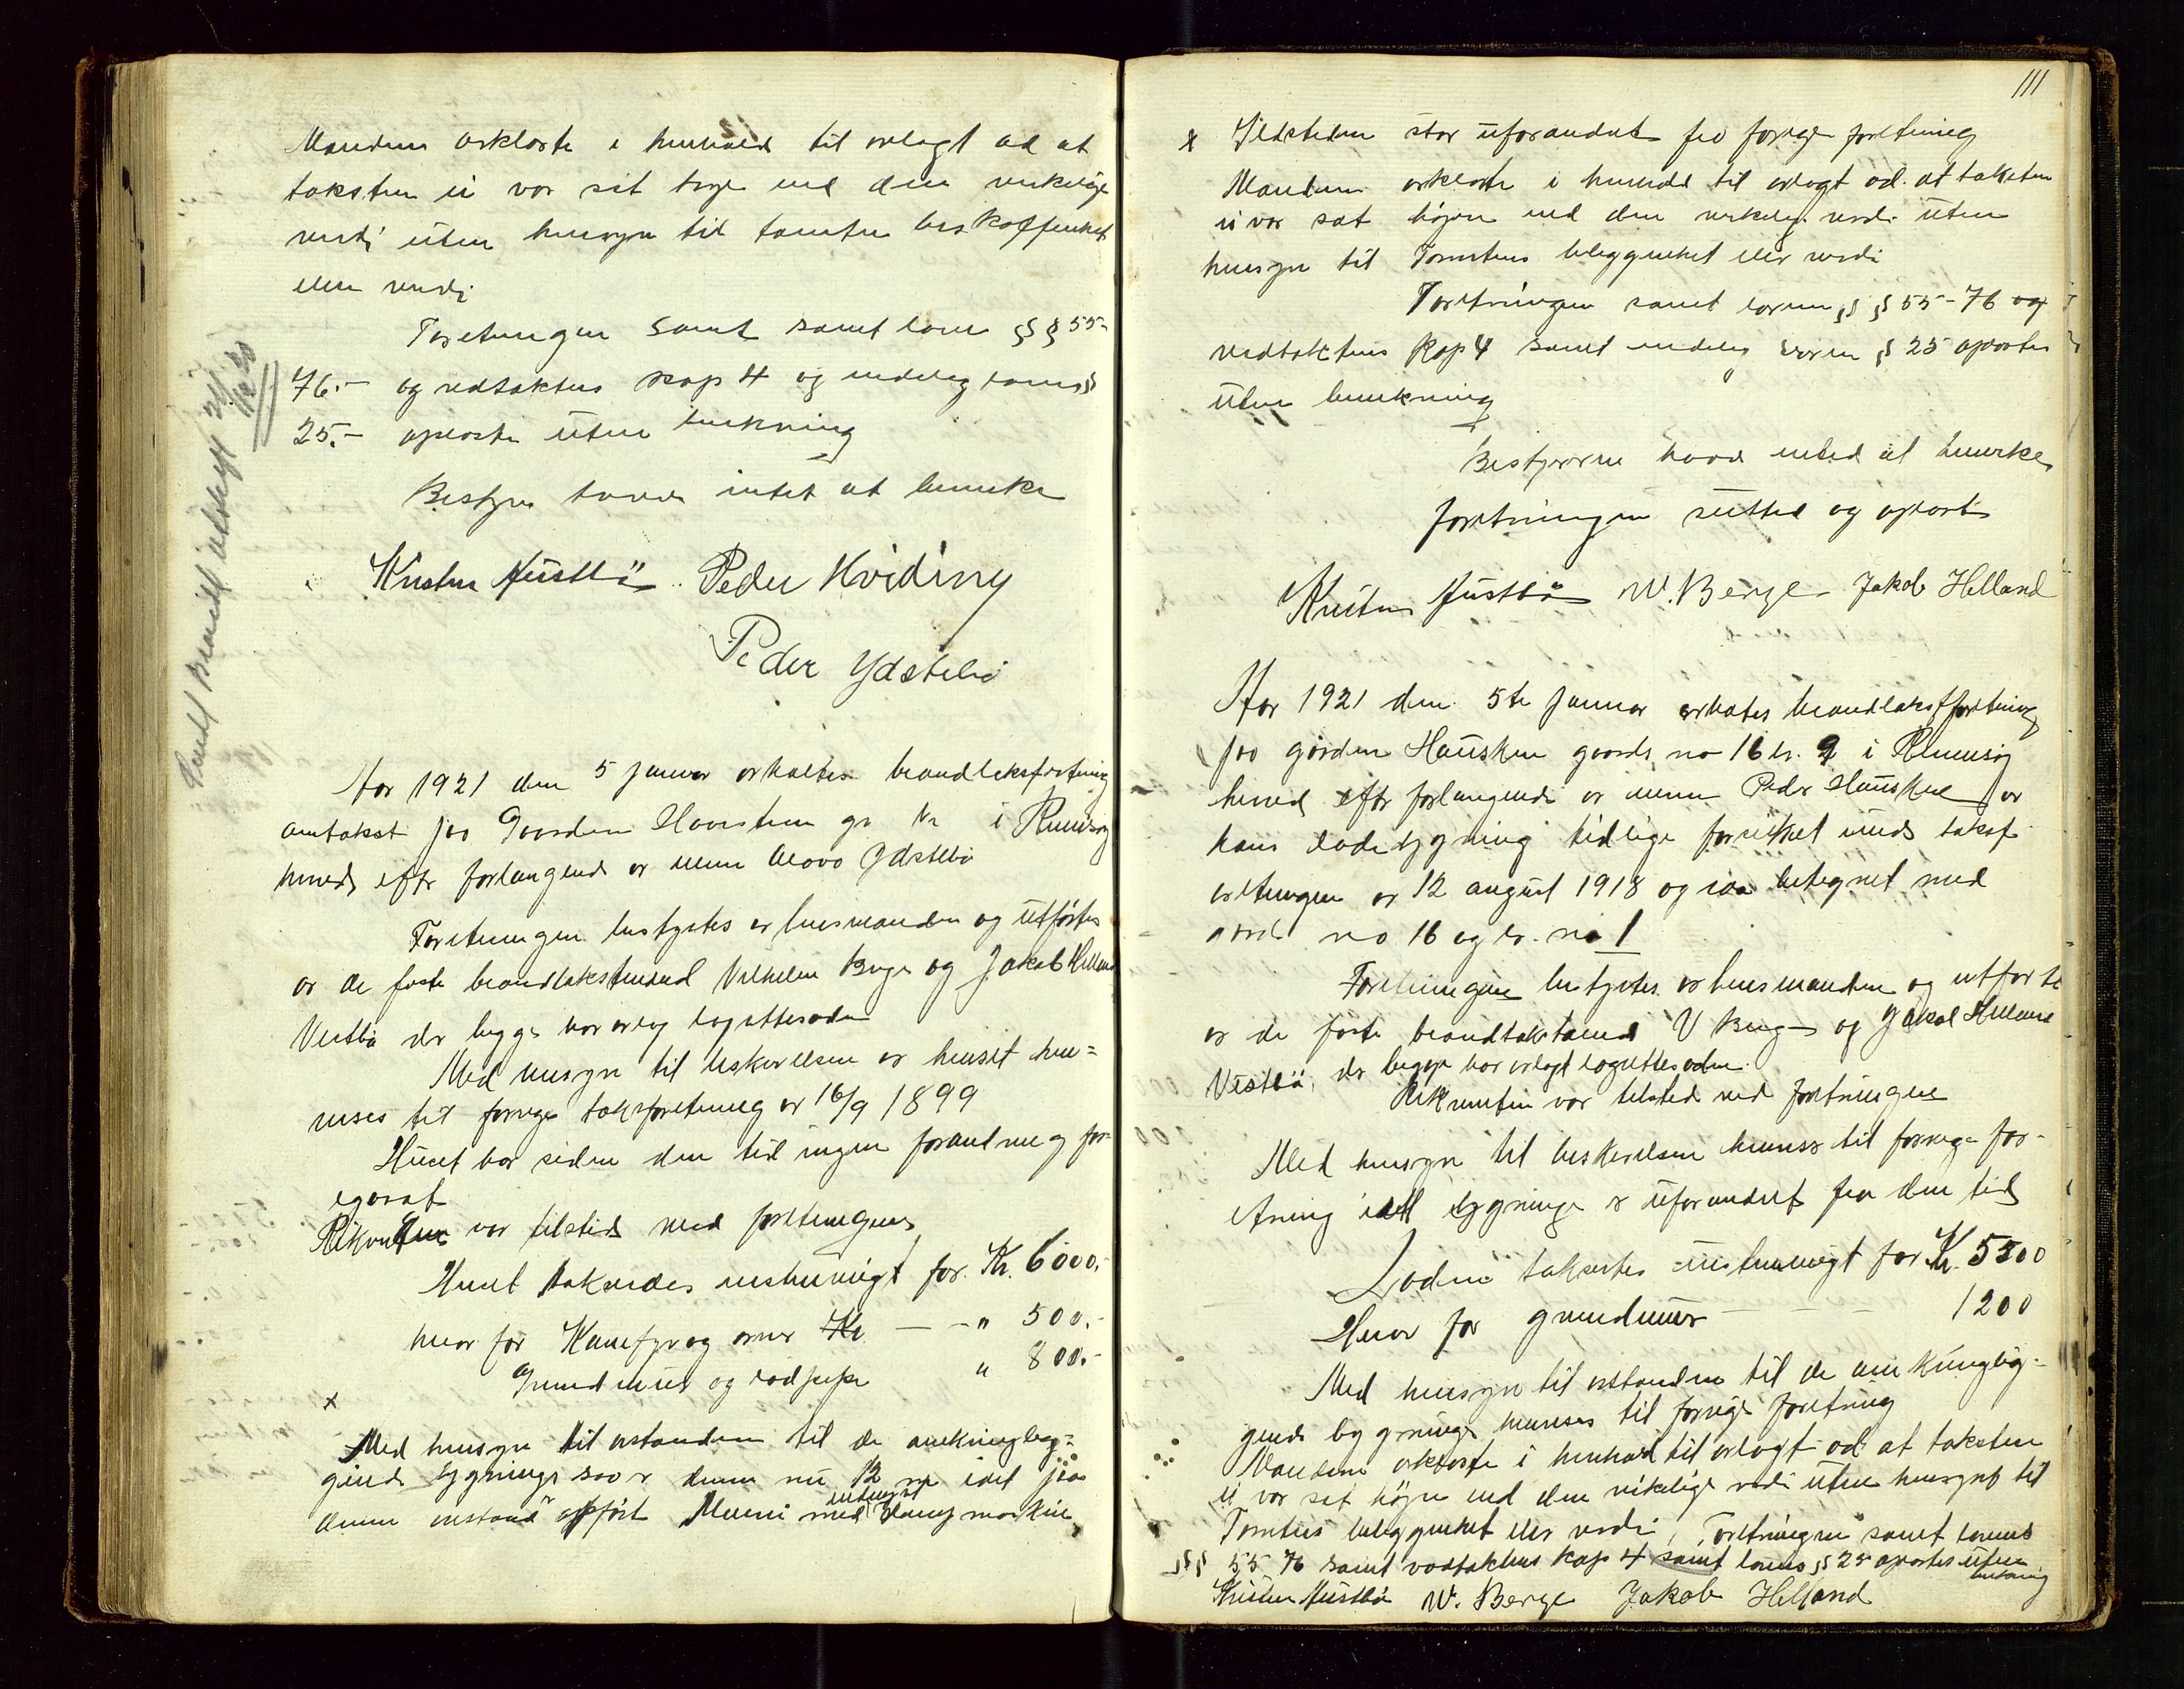 Mændene erklærte i henhold til avlagt ed at
taksten ei var sat høyere end den virkelige
verdi uten hensyn til tomtens beskaffenhet
eller verdi
Foretningen samt lovens §§ 55-
76.- og vedtaktens kap 4 og lovens §
25.- oplæste uten bemerkning
Bestyrer havde intet at bemerke
Kristen Austbø Peder Hviding
Peder Ydstebø
Aar 1921 den 5 januar avholdtes brandtakstforretning
omtakst paa Gaarden i Rennesøy
herred efter forlangende av Ydstebø
Forretningen bestyrtes av lensmanden og utførtes
av de faste brandtakstmænd Vilhelm Berge og Jakob Helland
Vestbø der begge har avlagt lagrettesed
Med hensyn til beskrivelsen av huset hen=
vises til forrige takstforretning av 16/9 1899
Huset har siden den tid ingen forandring for=
egaaet
Rekvirenten var tilstede ved forretningen
Huset takseredes enstemmigt for Kr. 6000.-
hvor for Kamefyr og ovner Kr. — -„ 500.-
Grundmur og „ 800.-
x
Med hensyn til avstanden til de omkringlig=
gende bygninger saa er denne nu 12 m idet paa
denne avstand er opført Meieri med indlagt dampmaskine
111
x Ildstedene staar uforandret fra forrige forretning
Mændene erklærte i henhold til avlagt ed at taksten
ei var sat højere end den virkelige verdi uten
hensyn til Tomtens beliggenhet eller verdi
Foretningen samt lovens §§ 55-76 og
vedtaktens kap 4 samt lovens § 25 oplæstes
uten bemerkning
Bestyreren havde intet at bemerke
foretningen sluttet og oplæst
Kristen Austbø W. Berge Jakob Helland
Aar 1921 den 5te januar avholdtes brandtakstforretning
paa gaarden Hausken gaards no 16 br. 9 i Rennesøy
herred efter forlangende av Peder Hausken av
hans ladebygning tidligere forsikret under takst
foretningen av 12 august 1918 og saa betegnet med
gaards no 16 og br. no 1
Foretningen bestyrtes av lensmanden og utførtes
av de faste brandtakstmænd V Berge og Jakob Helland
Vestbø, der begge har avlagt lagrettesed.
Rekvirenten var tilsted ved foretningen
Med hensyn til beskrivelsen henvises til forrige for-
etning idet bygningen er uforandret fra den tid
Laden takseredes enstemmigt for Kr. 5200
Hvor for grundmur — — — 1200
Med hensyn til avstanden til de omkringlig=
gende bygninger henvises til forrige foretning
Mændene erklærte i henhold til avlagt ed at taksten
ei var sat højere end den virkelige verdi uten hensyn til
Tomtens beliggenhet eller verdi, Foretningen samt lovens
§§ 55 76 samt vedtaktens kap 4 samt lovens § 25 oplæstes uten
bemerkning
Kristen Austbø W. Berge Jakob Helland